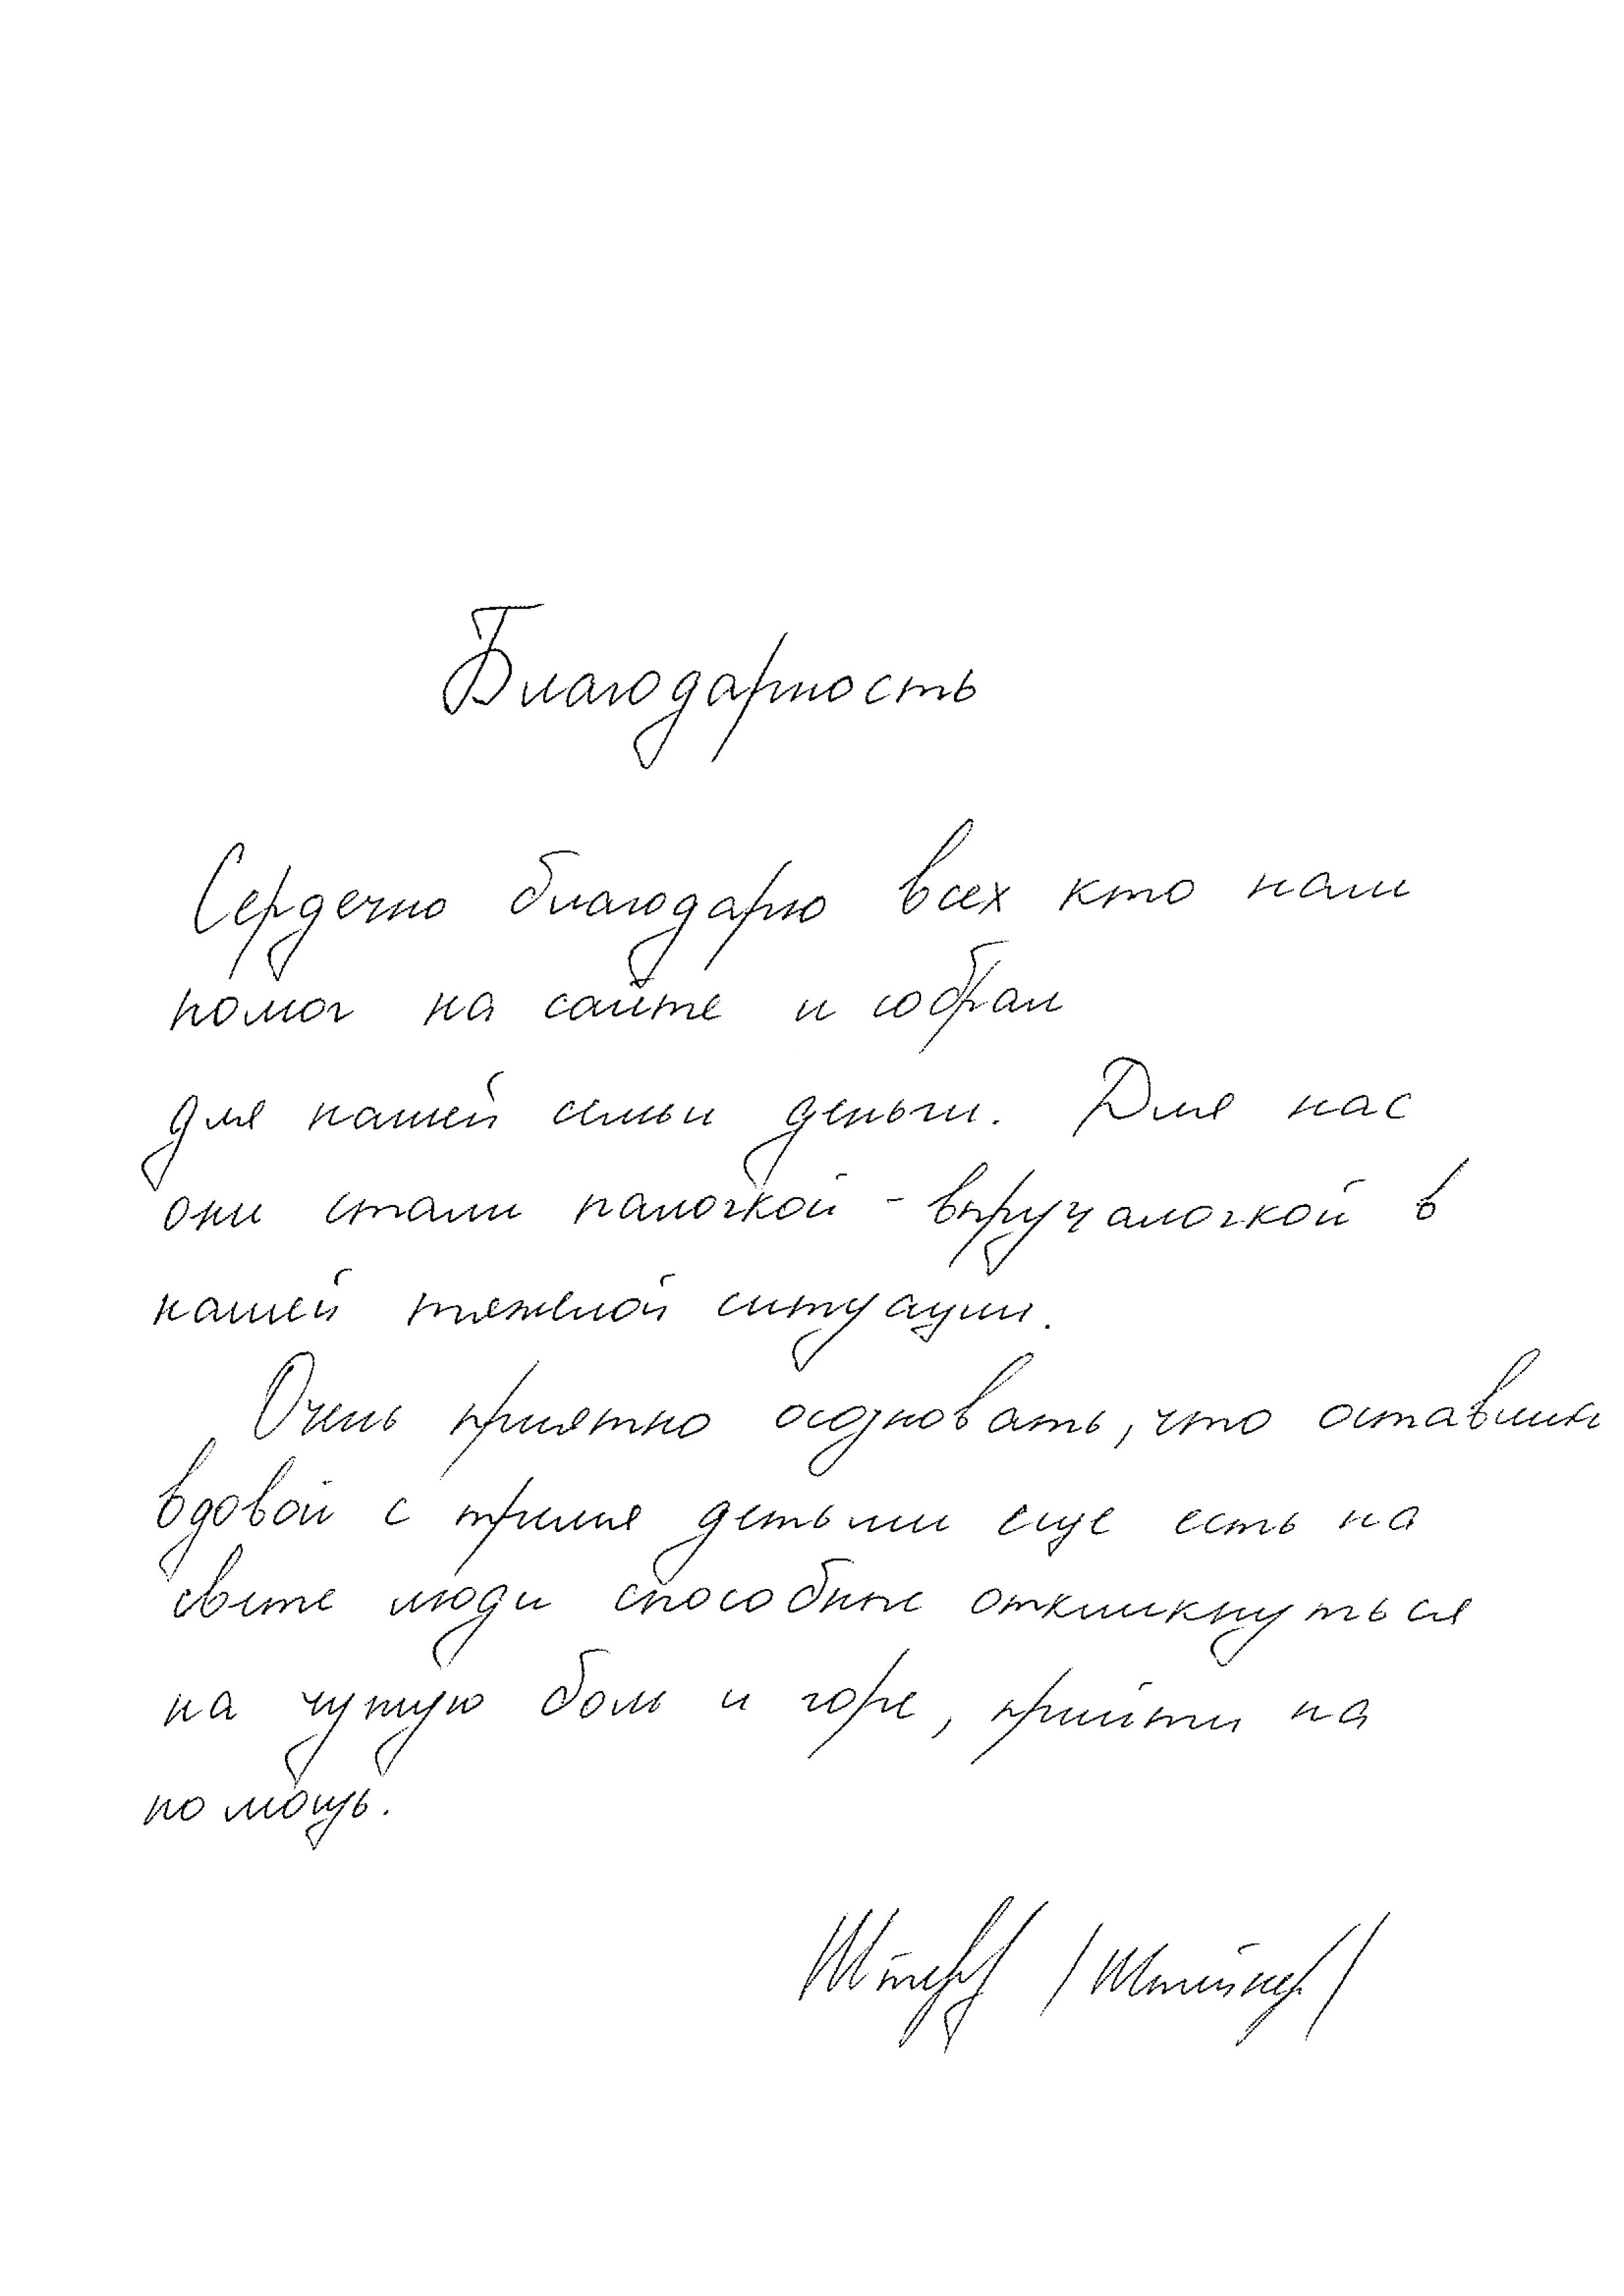 Благодарность
Сердечно благодарю всех кто нам
помог на сайте и собрал
для нашей семьи деньги. Для нас
они стали палочкой - выручалочкой в
нашей тяжелой ситуации.
Очень приятно осозновать, что
вдовой с тремя детьми еще есть на
свете люди способные откликнуться
на чужую боль и горе, прийти на
помощь.
/Штейнер/